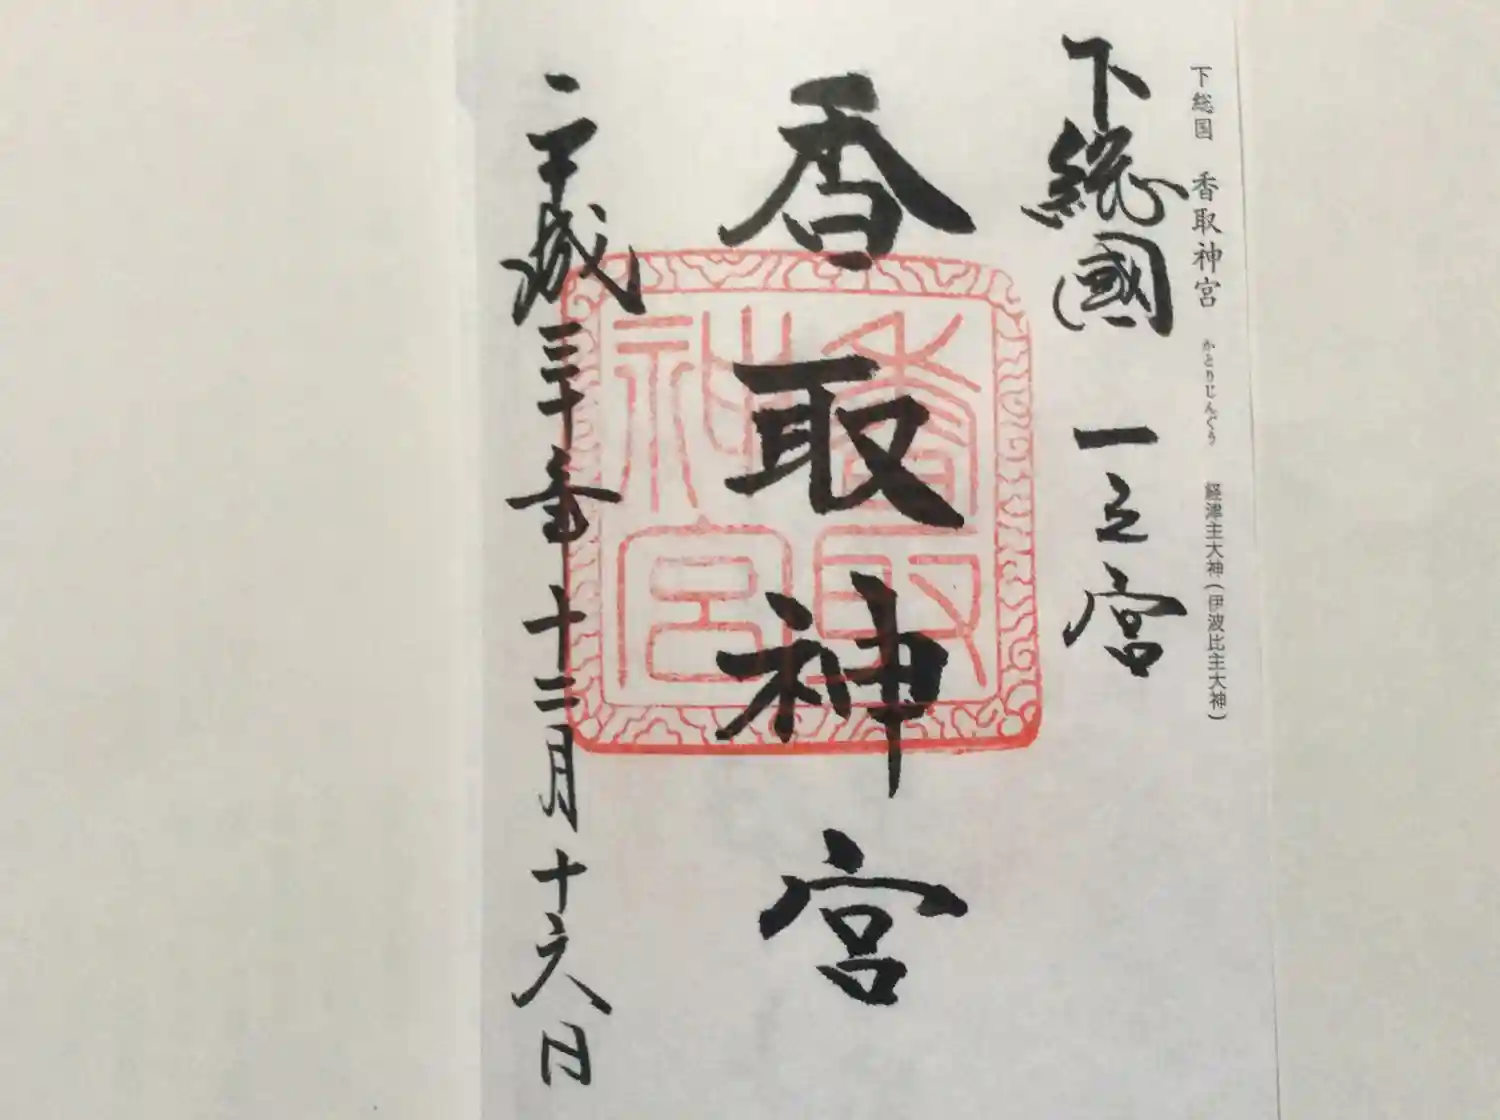 下総国 香取神宮 かとりじんぐう 経津主大神(伊波比主大神)
下総國 一之宮
香取神宮
平成三十年十二月十六日
香取神宮